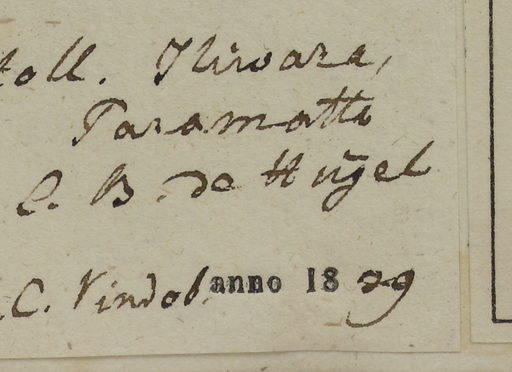 Coll. Illwara,
Paramatta
C. B. de Hügel
.C. Vindob. anno 1839